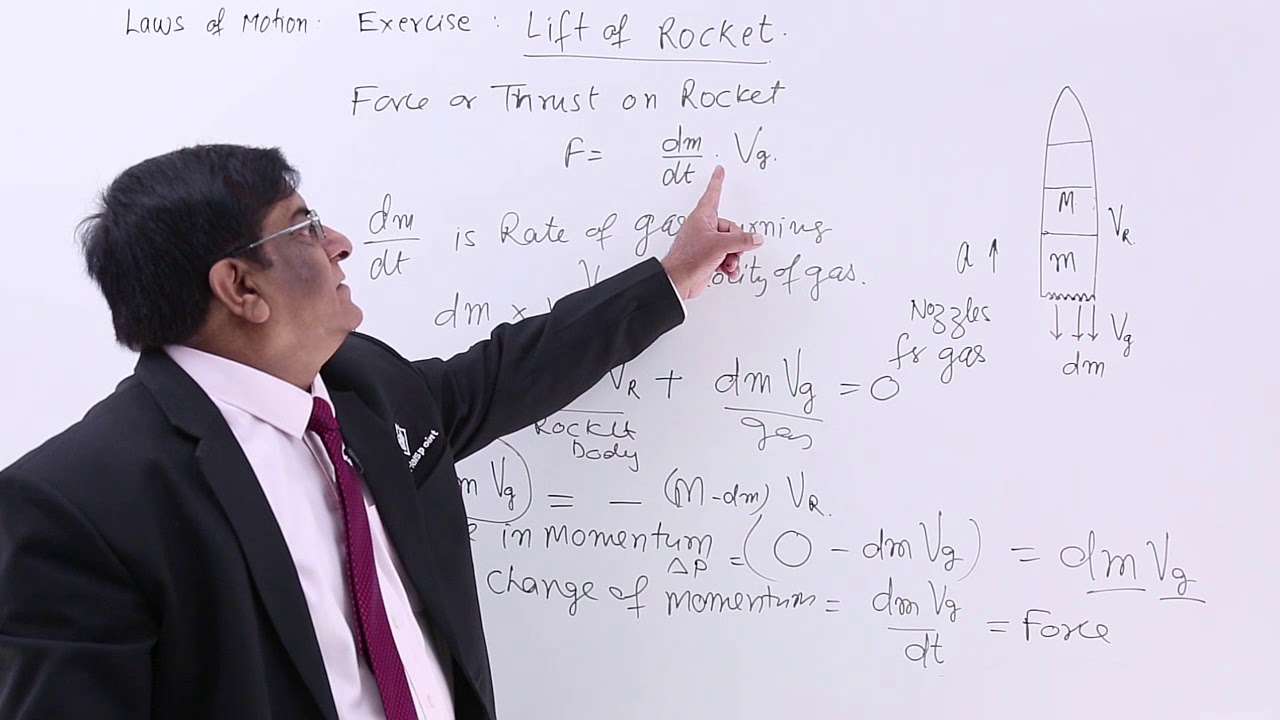 Laws of Motion. Exercise: Lift of Rocket.
Force or Thrust on Rocket
F = dm/dt . Vg.
dm/dt is Rate of gas burning
of gas.
dm ×
VR + dm Vg = 0
Rocket Body gas
m Vg) = - (M-dm) VR.
in momentum ΔP = (0 - dm Vg) = dm Vg
change of momentum = dm Vg/dt = Force
M
VR
a ↑
m
Nozzles
fr gas
Vg
dm